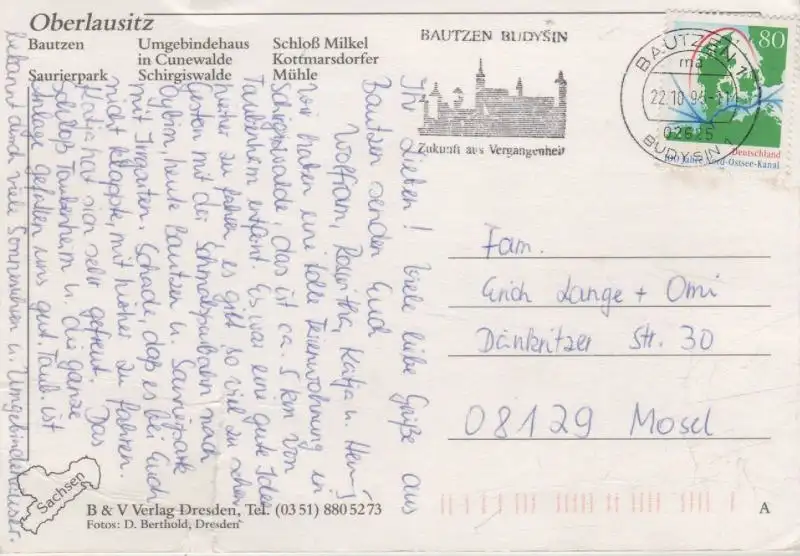 Oberlausitz
Bautzen
Umgebindehaus
in Cunewalde
Schloß Milkel
Kottmarsdorfer
Mühle
Saurierpark
Schirgiswalde
BAUTZEN BUDYŠIN
Zukunft aus Vergangenheit
BAUTZEN 1
ma
22.10.95
02625
BUDYŠIN 1
80
Deutschland
100 Jahre Nord-Ostsee-Kanal
Ihr Lieben! Viele liebe Grüße aus
Bautzen senden Euch
Wolfram, Roswitha, Katja u.
Wir haben eine tolle Ferienwohnung in
Schirgiswalde, das ist ca. 5 km von
Taubenheim entfernt. Es war eine gute Idee
hierher zu fahren, es gibt so viel zu sehen
Gestern mit der Schmalspurbahn nach
Oybin, heute Bautzen u. Saurierpark
mit Irrgarten. Schade, daß es bei Euch
nicht klappte, mit hierher zu fahren.
Katja hat sich sehr gefreut. Das
Schloß Taubenheim u. die ganze
Anlage gefallen uns gut. Taub. ist
bekannt durch viele Sonnenuhren u. Umgebindehäuser.
Fam.
Erich Lange + Omi
Dänkritzer Str. 30
08129 Mosel
Sachsen
B & V Verlag Dresden, Tel. (03 51) 880 52 73
Fotos: D. Berthold, Dresden
A